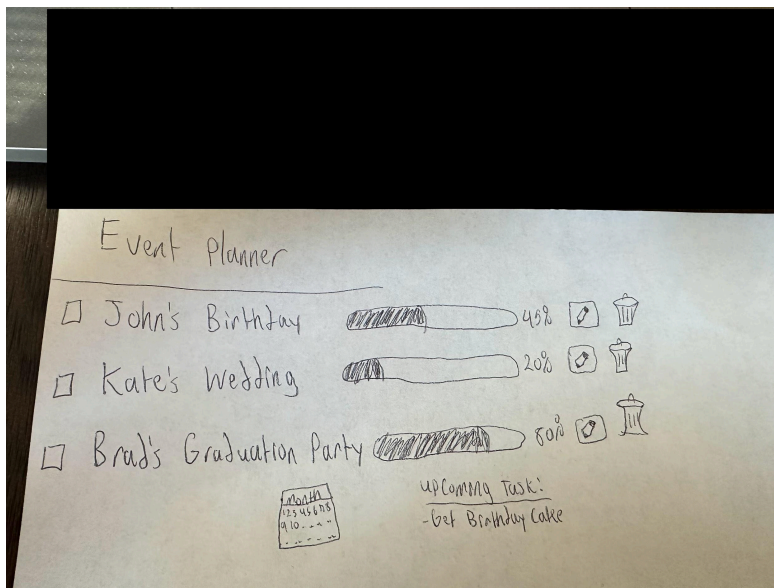 Event Planner
John's Birthday 45%
Kate's Wedding 20%
Brad's Graduation Party 80%
Month
12345678
910....
upcoming Task:
-Get Birthday Cake